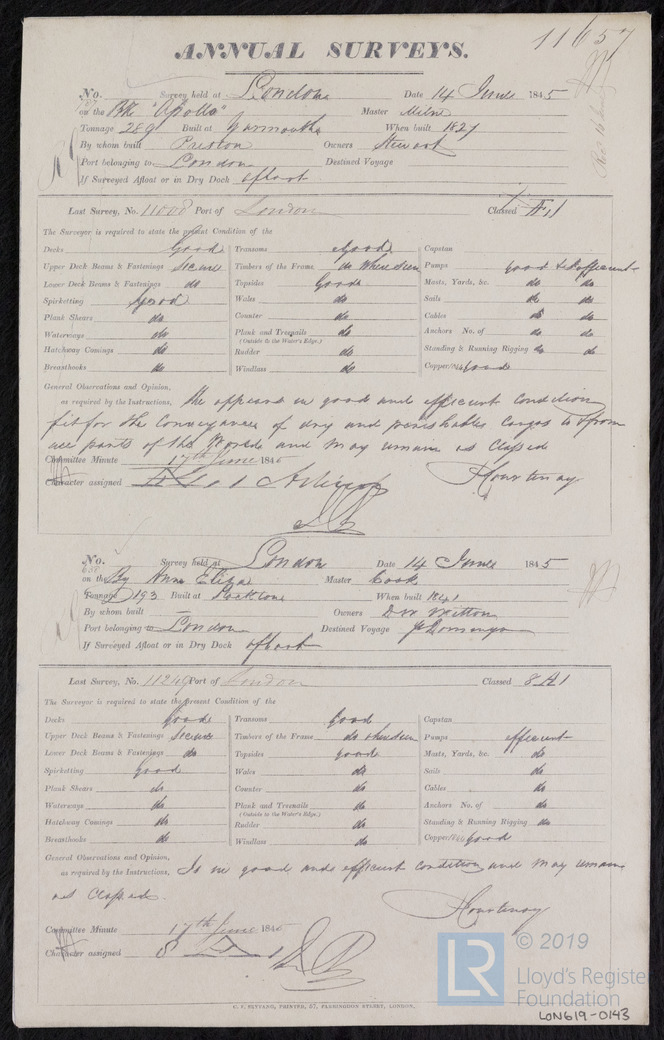 11657
ANNUAL SURVEYS.
No. Survey held at London Date 14 June 1845
on the Bk "Apollo" Master Milne
Tonnage 289 Built at Yarmouth When built 1827
By whom built Preston Owners Stewart
Port belonging to London Destined Voyage
If Surveyed Afloat or in Dry Dock afloat
Last Survey, No. 11008 Port of London Classed Æ 1
The Surveyor is required to state the present Condition of the
Decks Good Transoms Good Capstan
Upper Deck Beams & Fastenings Secure Timbers of the Frame do where seen Pumps good & efficient
Lower Deck Beams & Fastenings do Topsides Good Masts, Yards, &c. do do
Spirketting Good Wales do Sails do do
Plank Shears do Counter do Cables do do
Waterways do Plank and Treenails do Anchors No. of do do
(Outside to the Water's Edge.)
Hatchway Comings do Rudder do Standing & Running Rigging do do
Breasthooks do Windlass do Copper Good
General Observations and Opinion,
as required by the Instructions, She appears in good and efficient condition
fit for the conveyance of dry and perishable cargos to & from
all parts of the World and may remain as Classed
Committee Minute 17th June 1845
Character assigned Courtenay
No. Survey held at London Date 14 June 1845
on the Bg Ann Eliza Master Cook
Tonnage 193 Built at When built 1841
By whom built — Owners
Port belonging to London Destined Voyage St Domingo
If Surveyed Afloat or in Dry Dock afloat
Last Survey, No. 11249 Port of London Classed 8 A 1
The Surveyor is required to state the present Condition of the
Decks Good Transoms Good Capstan
Upper Deck Beams & Fastenings Secure Timbers of the Frame do where seen Pumps efficient
Lower Deck Beams & Fastenings do Topsides good Masts, Yards, &c. do
Spirketting Good Wales do Sails do
Plank Shears do Counter do Cables do
Waterways do Plank and Treenails do Anchors No. of do
(Outside to the Water's Edge.)
Hatchway Comings do Rudder do Standing & Running Rigging do
Breasthooks do Windlass do Copper good
General Observations and Opinion,
as required by the Instructions, Is in good and efficient condition and may remain
as Classed.
Courtenay
Committee Minute 17th June 1845
Character assigned 8 A 1
C. F. Seyfang, Printer, 57, Farringdon Street, London.
LR © 2019
Lloyd's Register
Foundation
LON619-0143